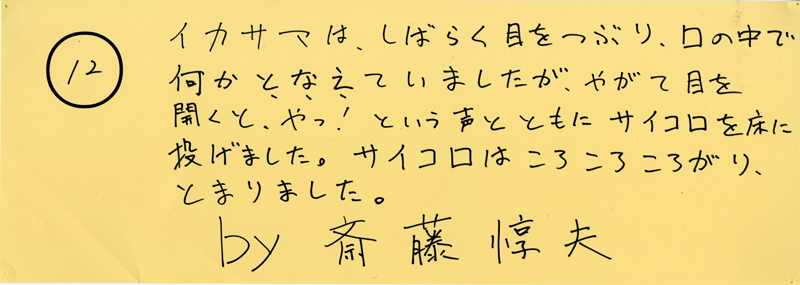 12
イカサマは、しばらく目をつぶり、口の中で
何かとなえていましたが、やがて目を
開くと、やっ!という声とともにサイコロを床に
投げました。サイコロはころころころがり、
とまりました。
by 斎藤惇夫